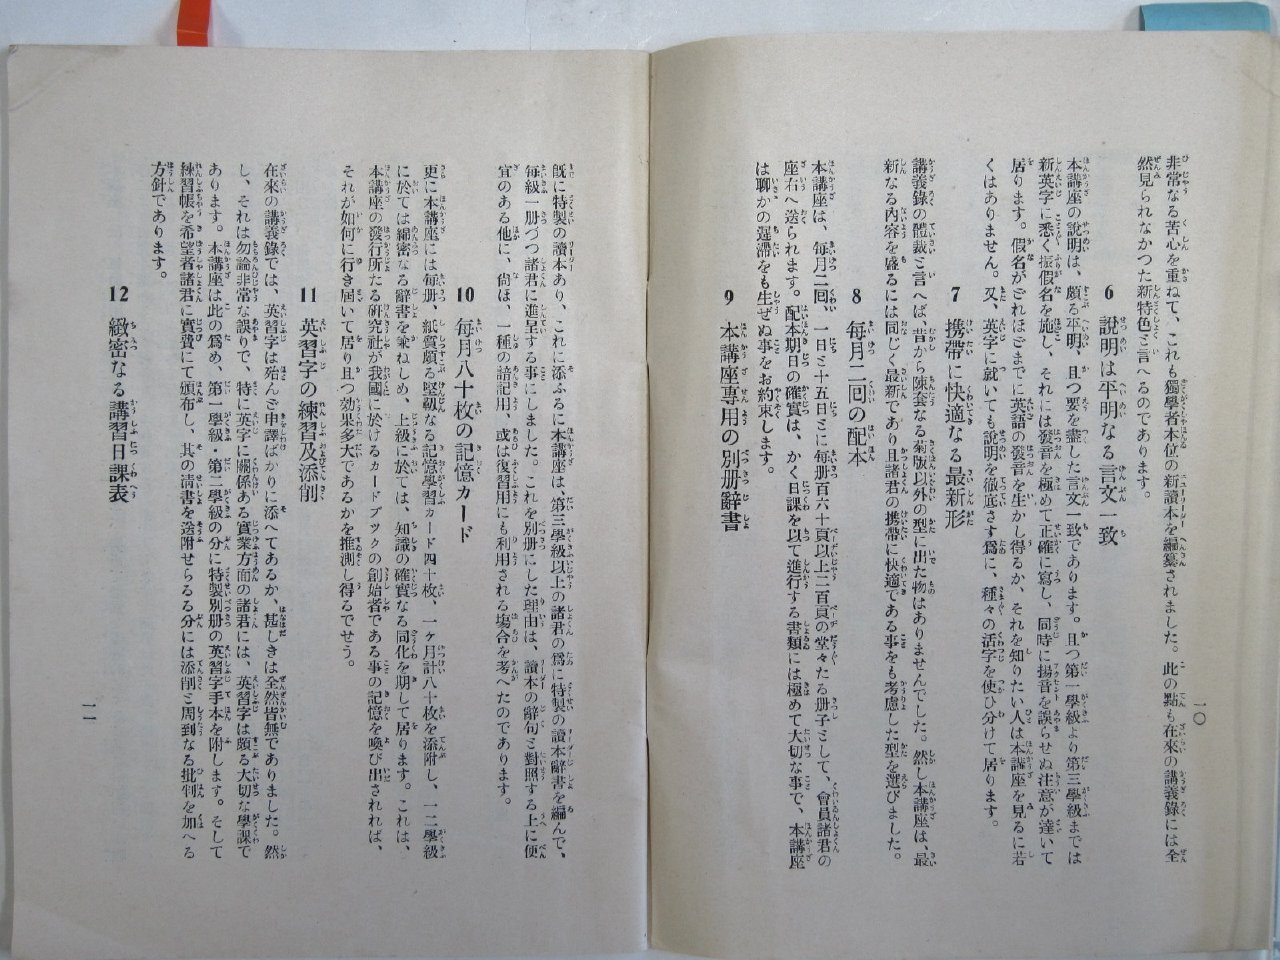 一〇
非常なる苦心を重ねて、これも獨學者本位の新讀本を編纂されました。此の點も在來の講義錄には全
然見られなかつた新特色と言へるのであります。
6 說明は平明なる言文一致
本講座の說明は、頗る平明、且つ要を盡した言文一致であります。且つ第一學級より第三學級までは
新英字に悉く振假名を施し、それには發音を極めて正確に寫し、同時に揚音を誤らせぬ注意が達いて
居ります。假名がどれほどまでに英語の發音を生かし得るか、それを知りたい人は本講座を見るに若
くはありません。又、英字に就いても說明を徹底さす爲に、種々の活字を使ひ分けて居ります。
7 携帶に快適なる最新形
講義錄の體裁と言へば、昔から陳套なる菊版以外の型に出た物はありませんでした。然し本講座は、最
新なる內容を盛るには同じく最新であり且諸君の携帶に快適である事をも考慮した型を選びました。
8 每月二回の配本
本講座は、每月二回、一日と十五日とに每册百六十頁以上二百頁の堂々たる册子として、會員諸君の
座右へ送られます。配本期日の確實は、かく日課を以て進行する書類には極めて大切な事で、本講座
は聊かの遲滯をも生ぜぬ事をお約束します。
9 本講座專用の別册辭書
旣に特製の讀本あり、これに添ふるに本講座は、第三學級以上の諸君の爲に特製の讀本辭書を編んで、
每級一册づつ諸君に進呈する事にしました。これを別册にした理由は、讀本の辭句と對照する上に便
宜のある他に、尙ほ、一種の諳記用、或は復習用にも利用される場合を考へたのであります。
10 每月八十枚の記憶カード
更に本講座には每册、紙質頗る堅靭なる記憶學習カード四十枚、一ヶ月計八十枚を添附し、一二學級
に於ては綿密なる辭書を兼ねしめ、上級に於ては、知識の確實なる同化を期して居ります。これは、
本講座の發行所たる硏究社が我國に於けるカードブックの創始者である事の記憶を喚び出されれば、
それが如何に行き屆いて居り且つ効果多大であるかを推測し得るでせう。
11 英習字の練習及添削
在來の講義錄では、英習字は殆んど申譯ばかりに添へてあるか、甚しきは全然皆無でありました。然
し、それは勿論非常な誤りで、特に英字に關係ある實業方面の諸君には、英習字は頗る大切な學課で
あります。本講座は此の爲め、第一學級・第二學級の分に特製別册の英習字手本を附します。そして
練習帳を希望者諸君に實費にて頒布し、其の淸書を送附せらるる分には添削と周到なる批判を加へる
方針であります。
12 緻密なる講習日課表
一一